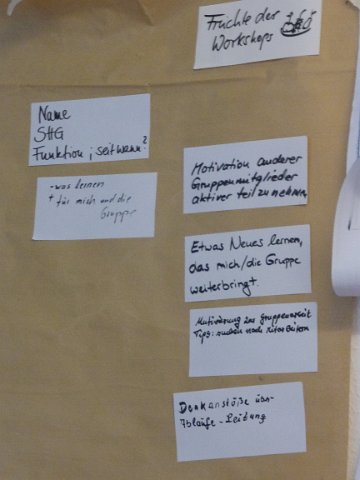 Früchte der
Workshops
Name
SHG
Funktion; seit wann?
- was lernen
+ für mich und die
Gruppe
Motivation anderer
Gruppenmitglieder
aktiver teil zu nehmen
Etwas Neues lernen,
das mich/die Gruppe
weiterbringt
Motivierung zur Gruppenarbeit
Tips: nach
Denkanstöße
Abläufe - Leitung